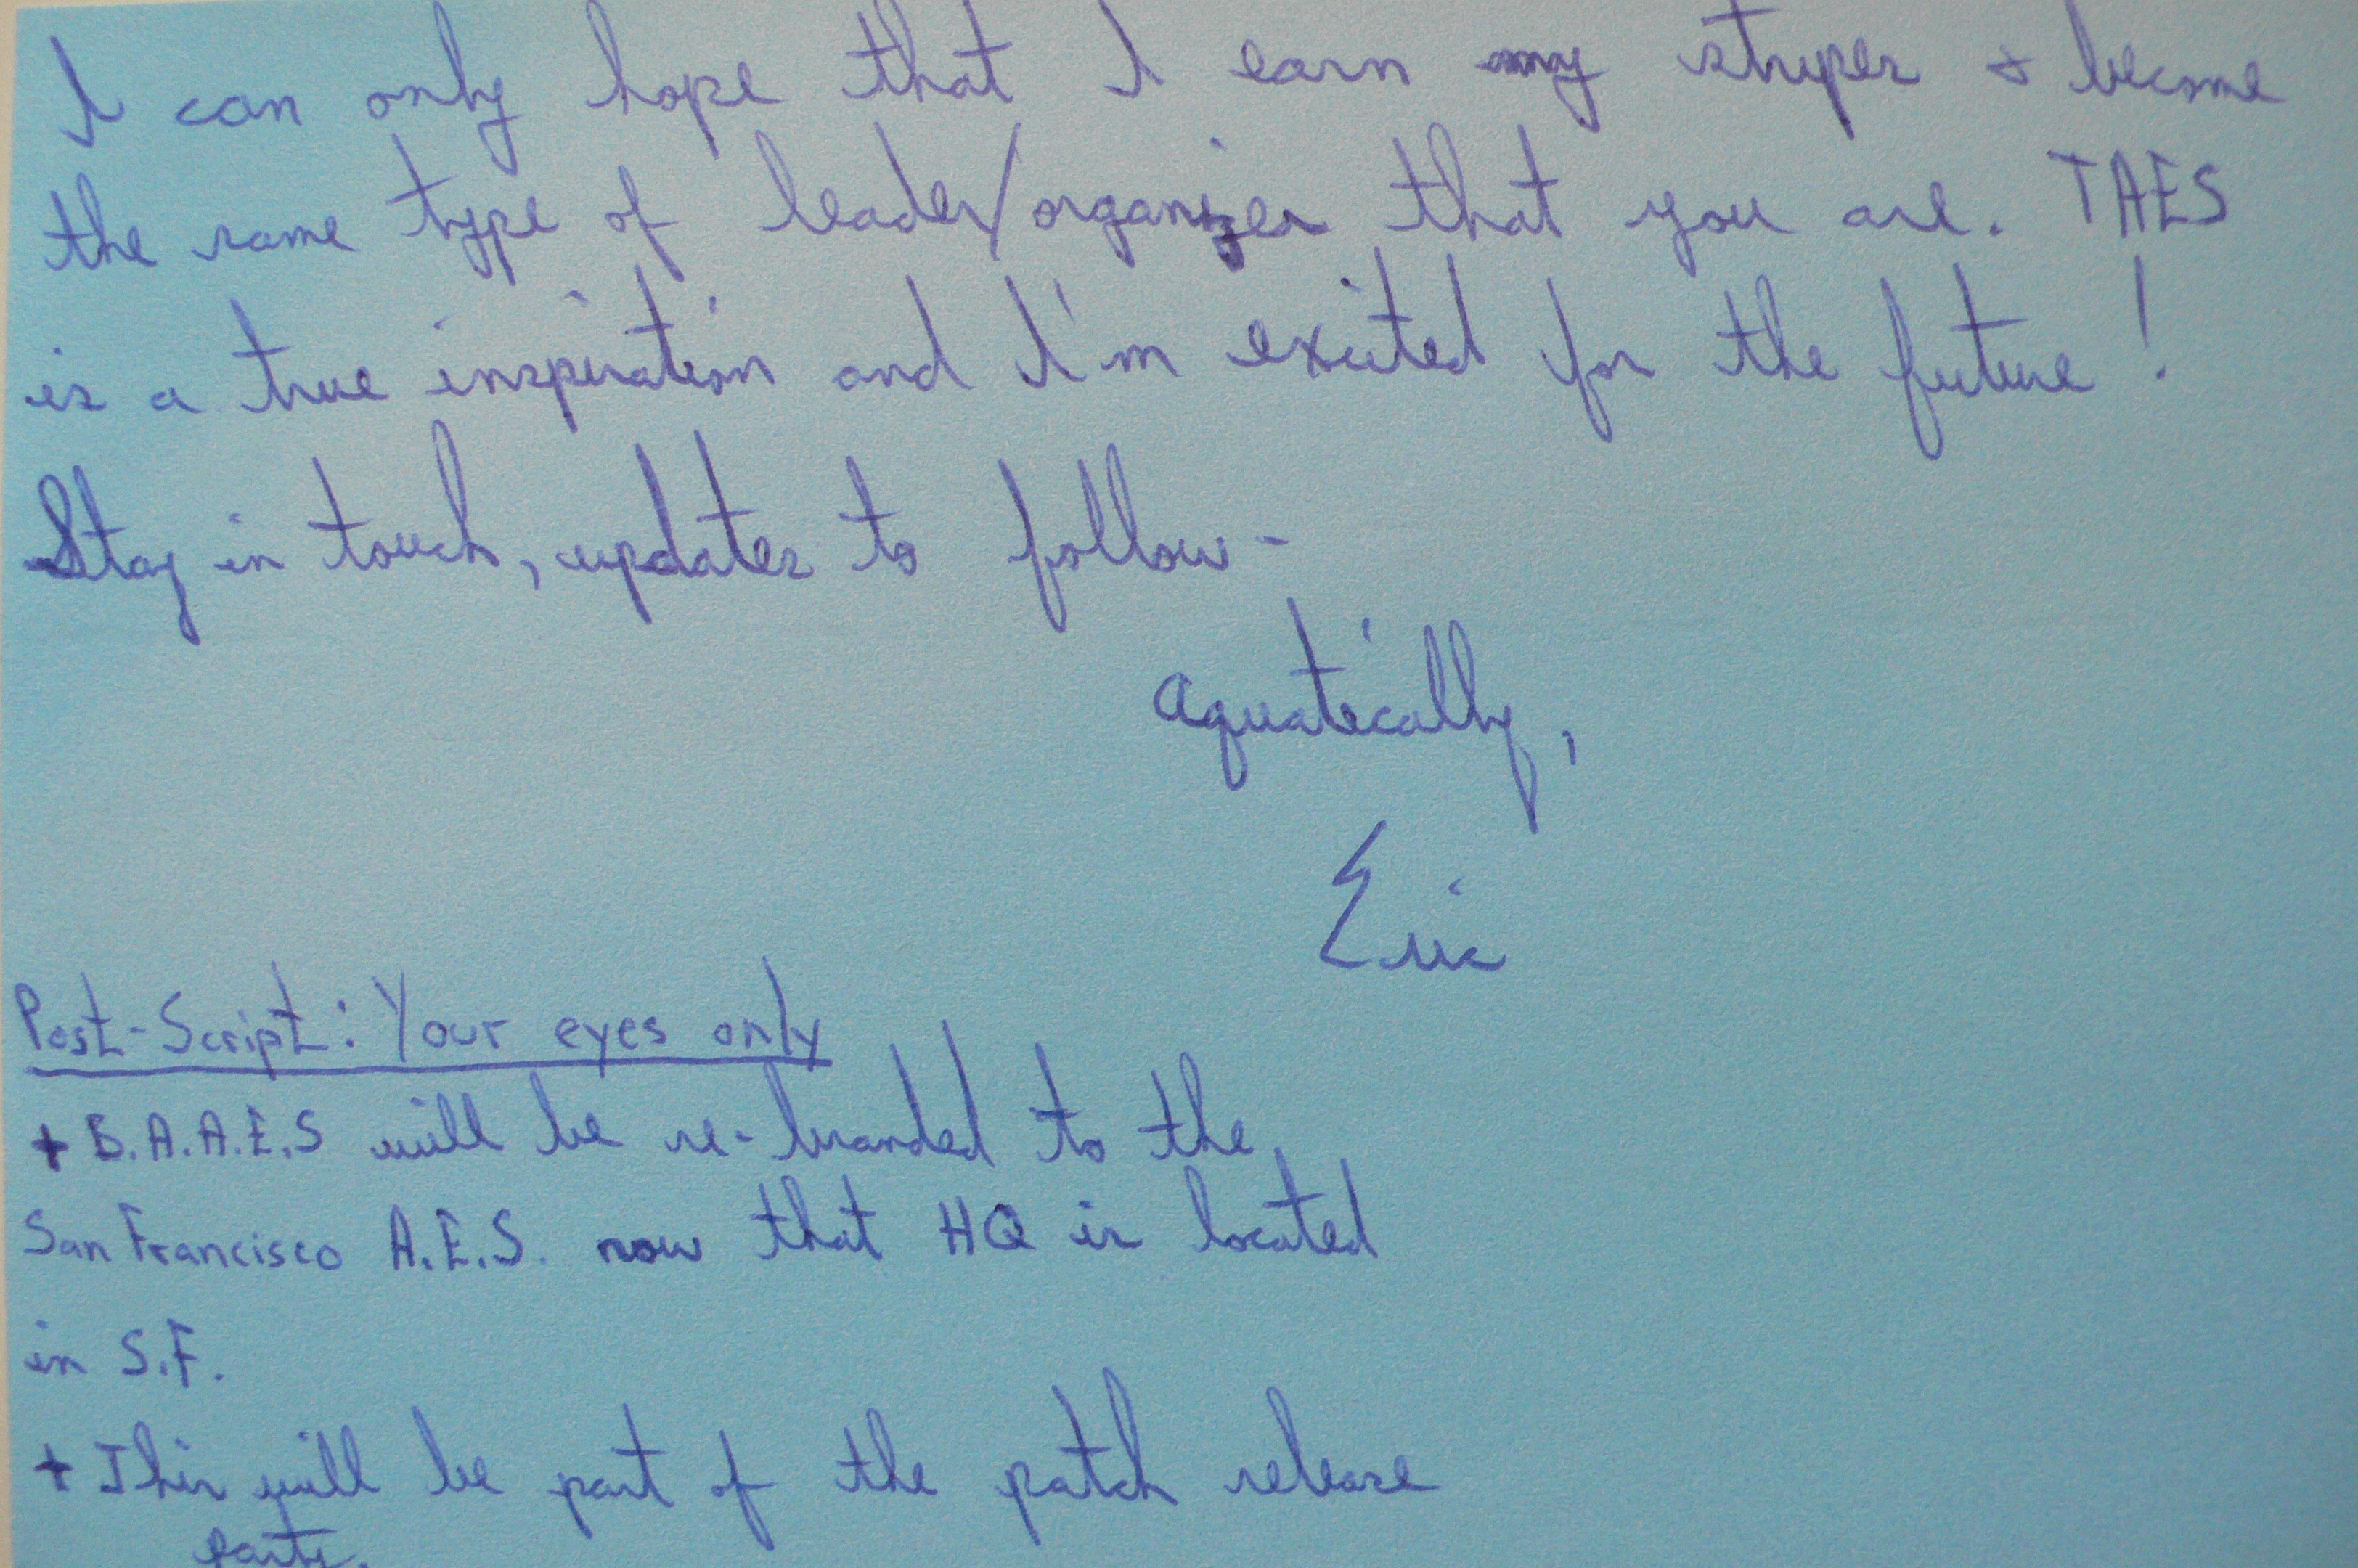 I can only hope that I earn my stripes + become
the same type of leader/organizer that you are. TAES
is a true inspiration and I'm excited for the future!
Stay in touch, updates to follow-
Aquatically,
Eric
Post-Script: Your eyes only
+ B.A.A.E.S will be re-branded to the
San Francisco A.E.S. now that HQ is located
in S.F.
+ This will be part of the patch release
party.